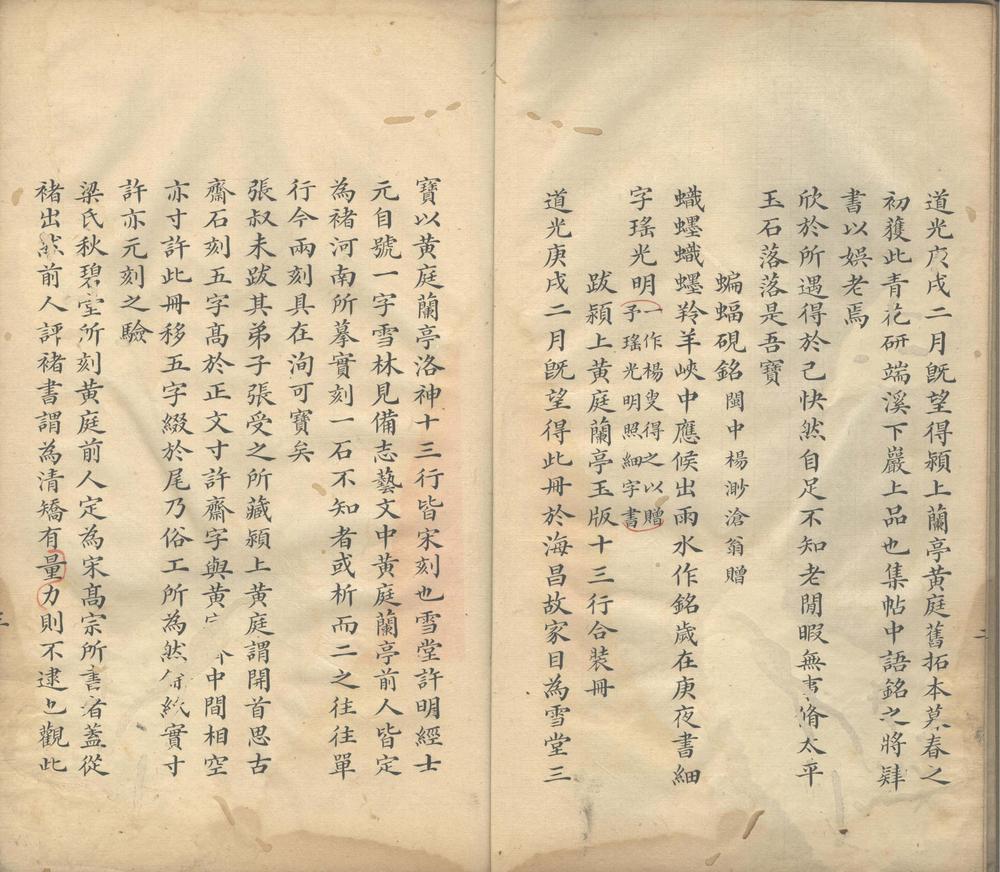 道光庚戌二月既望得潁上蘭亭黃庭舊拓本莫春之
初獲此青花研端溪下巖上品也集帖中語銘之將肄
書以娛老焉
欣於所遇得於己快然自足不知老閒暇無事脩太平
玉石落落是吾寶
蝙蝠硯銘 閩中楊渺滄翁贈
蟙䘃蟙䘃羚羊峽中應候出雨水作銘歲在庚夜書細
字瑤光明
一作楊叟得之以贈
予瑤光明照細字書
跋潁上黃庭蘭亭玉版十三行合裝冊
道光庚戌二月既望得此冊於海昌故家目為雪堂三
寶以黃庭蘭亭洛神十三行皆宋刻也雪堂許明經士
元自號一字雪林見備志藝文中黃庭蘭亭前人皆定
為褚河南所摹實刻一石不知者或析而二之往往單
行今兩刻具在洵可寶矣
張叔未跋其弟子張受之所藏潁上黃庭謂開首思古
齋石刻五字高於正文寸許齋字與黃中間相空
亦寸許此冊移五字綴於尾乃俗工所為然實寸
許亦元刻之驗
梁氏秋碧堂所刻黃庭前人定為宋高宗所書者蓋從
褚出然前人評褚書謂為清矯有量力則不逮也觀此
三